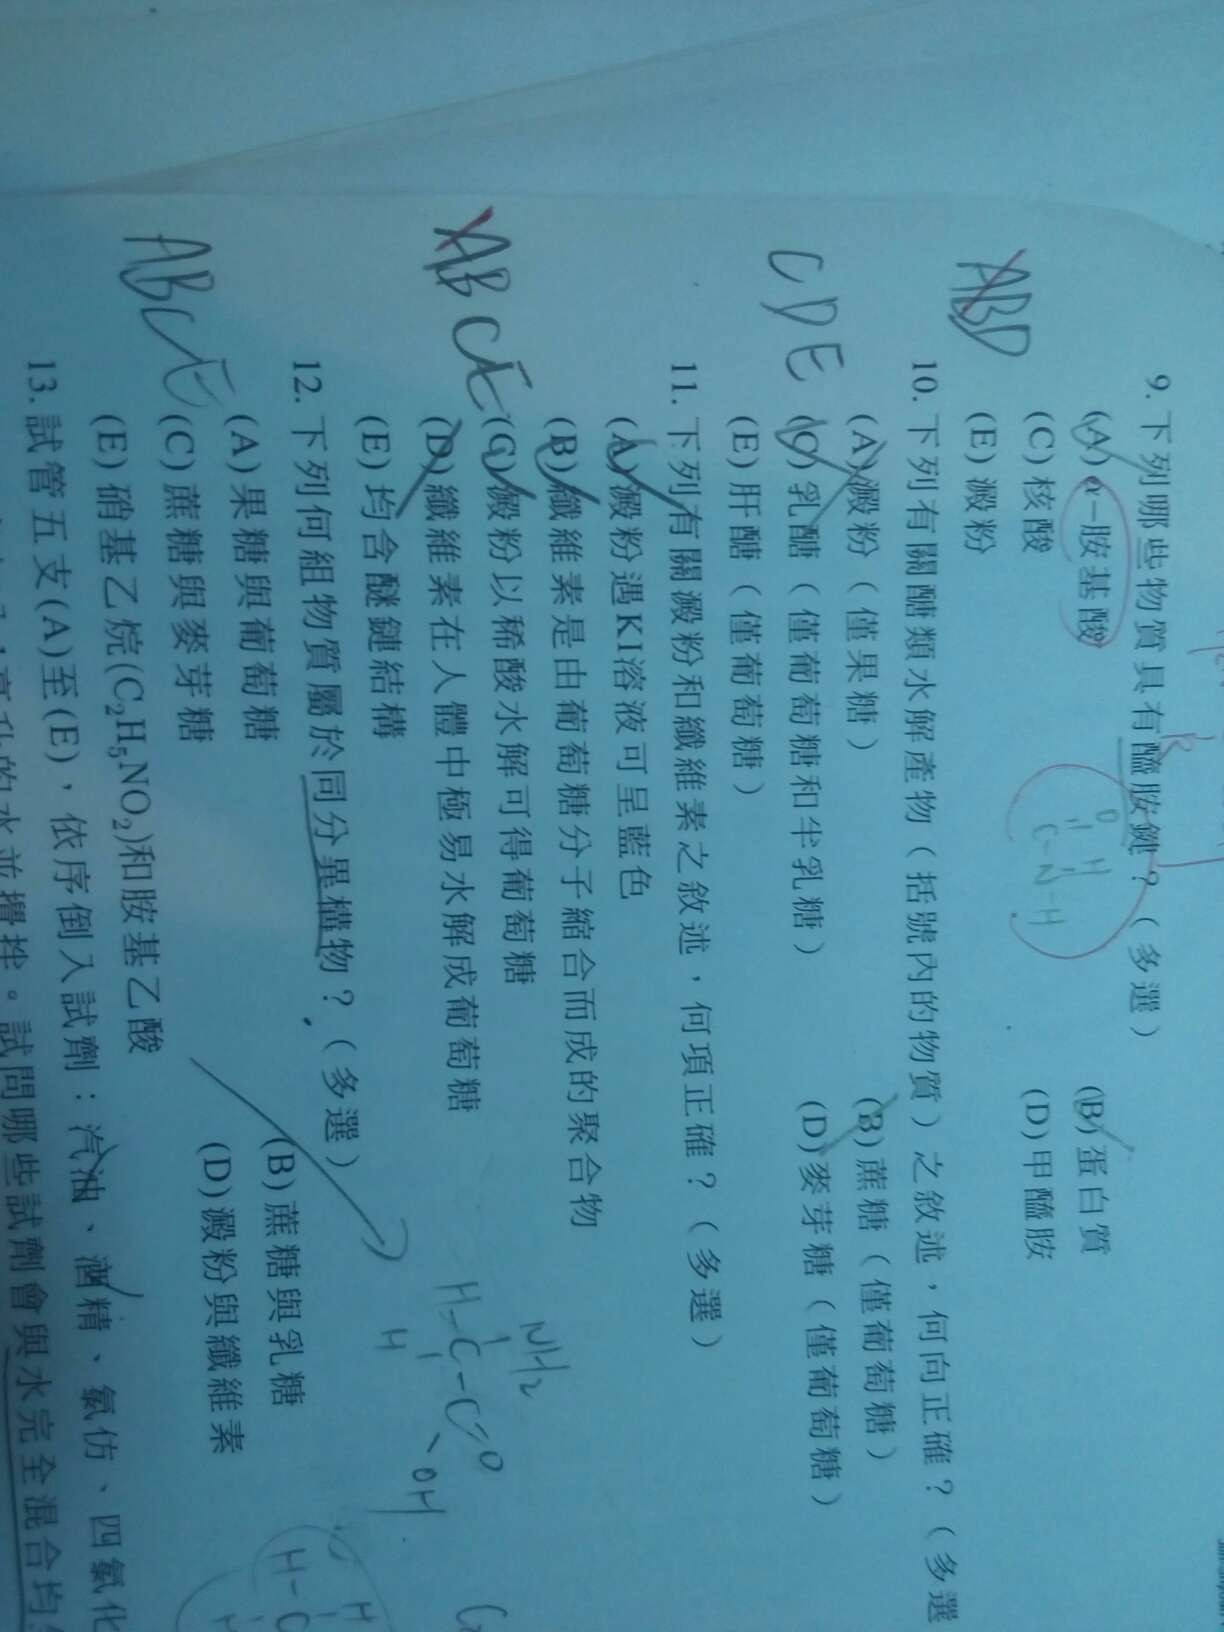 9. 下列哪些物質具有醯胺鍵？（多選）
(A) α-胺基酸 (B) 蛋白質
(C) 核酸 (D) 甲醯胺
(E) 澱粉
ABD
10. 下列有關醣類水解產物（括號內的物質）之敘述，何向正確？（多選
(A) 澱粉（僅果糖） (B) 蔗糖（僅葡萄糖）
(C) 乳醣（僅葡萄糖和半乳糖） (D) 麥芽糖（僅葡萄糖）
(E) 肝醣（僅葡萄糖）
CDE
11. 下列有關澱粉和纖維素之敘述，何項正確？（多選）
(A) 澱粉遇KI溶液可呈藍色
(B) 纖維素是由葡萄糖分子縮合而成的聚合物
(C) 澱粉以稀酸水解可得葡萄糖
(D) 纖維素在人體中極易水解成葡萄糖
(E) 均含醚鍵結構
ABCE
12. 下列何組物質屬於同分異構物？（多選）
(A) 果糖與葡萄糖 (B) 蔗糖與乳糖
(C) 蔗糖與麥芽糖 (D) 澱粉與纖維素
(E) 硝基乙烷(C₂H₅NO₂)和胺基乙酸
ABCE
NH₂
H-C-C=O
H OH
13. 試管五支(A)至(E)，依序倒入試劑：汽油、酒精、氯仿、四氯化
的水並攪拌。試問哪些試劑會與水完全混合均